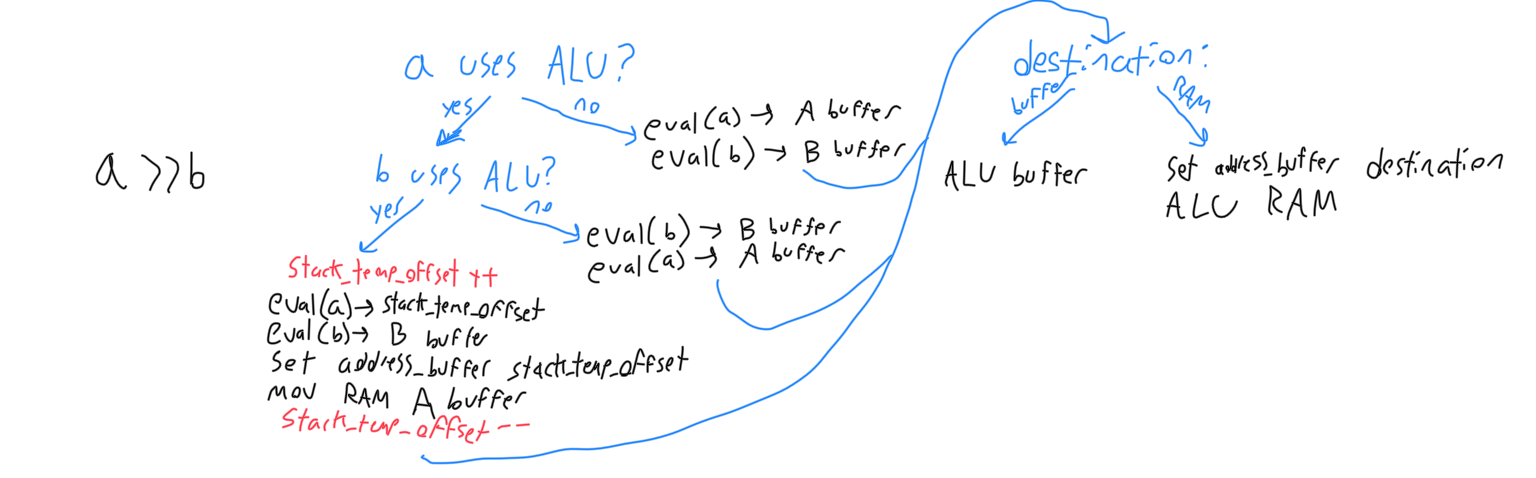 a >>b
a uses ALU?
yes
no
b uses ALU?
yes
no
eval(a)→ A buffer
eval(b)→ B buffer
eval(b)→ B buffer
eval(a)→ A buffer
Stack_temp_offset ++
eval(a)→ stack_temp_offset
eval(b)→ B buffer
Set address_buffer stack_temp_offset
mov RAM A buffer
Stack_temp_offset --
destination:
buffer
RAM
ALU buffer
Set address_buffer destination
ALU RAM